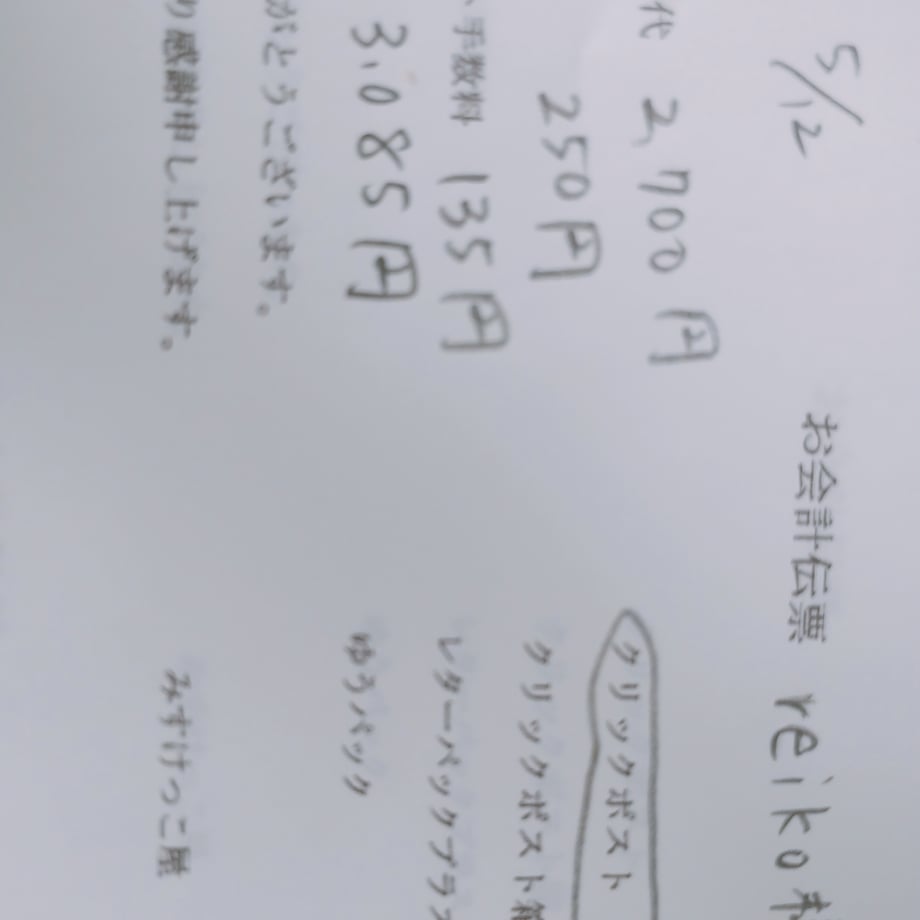 5/12
お会計伝票 reiko
代 2,700円
クリックポスト
250円
クリックポスト箱
手数料 135円
レターパックプラス
3,085円
ゆうパック
がとうございます。
り感謝申し上げます。
みすけっこ屋